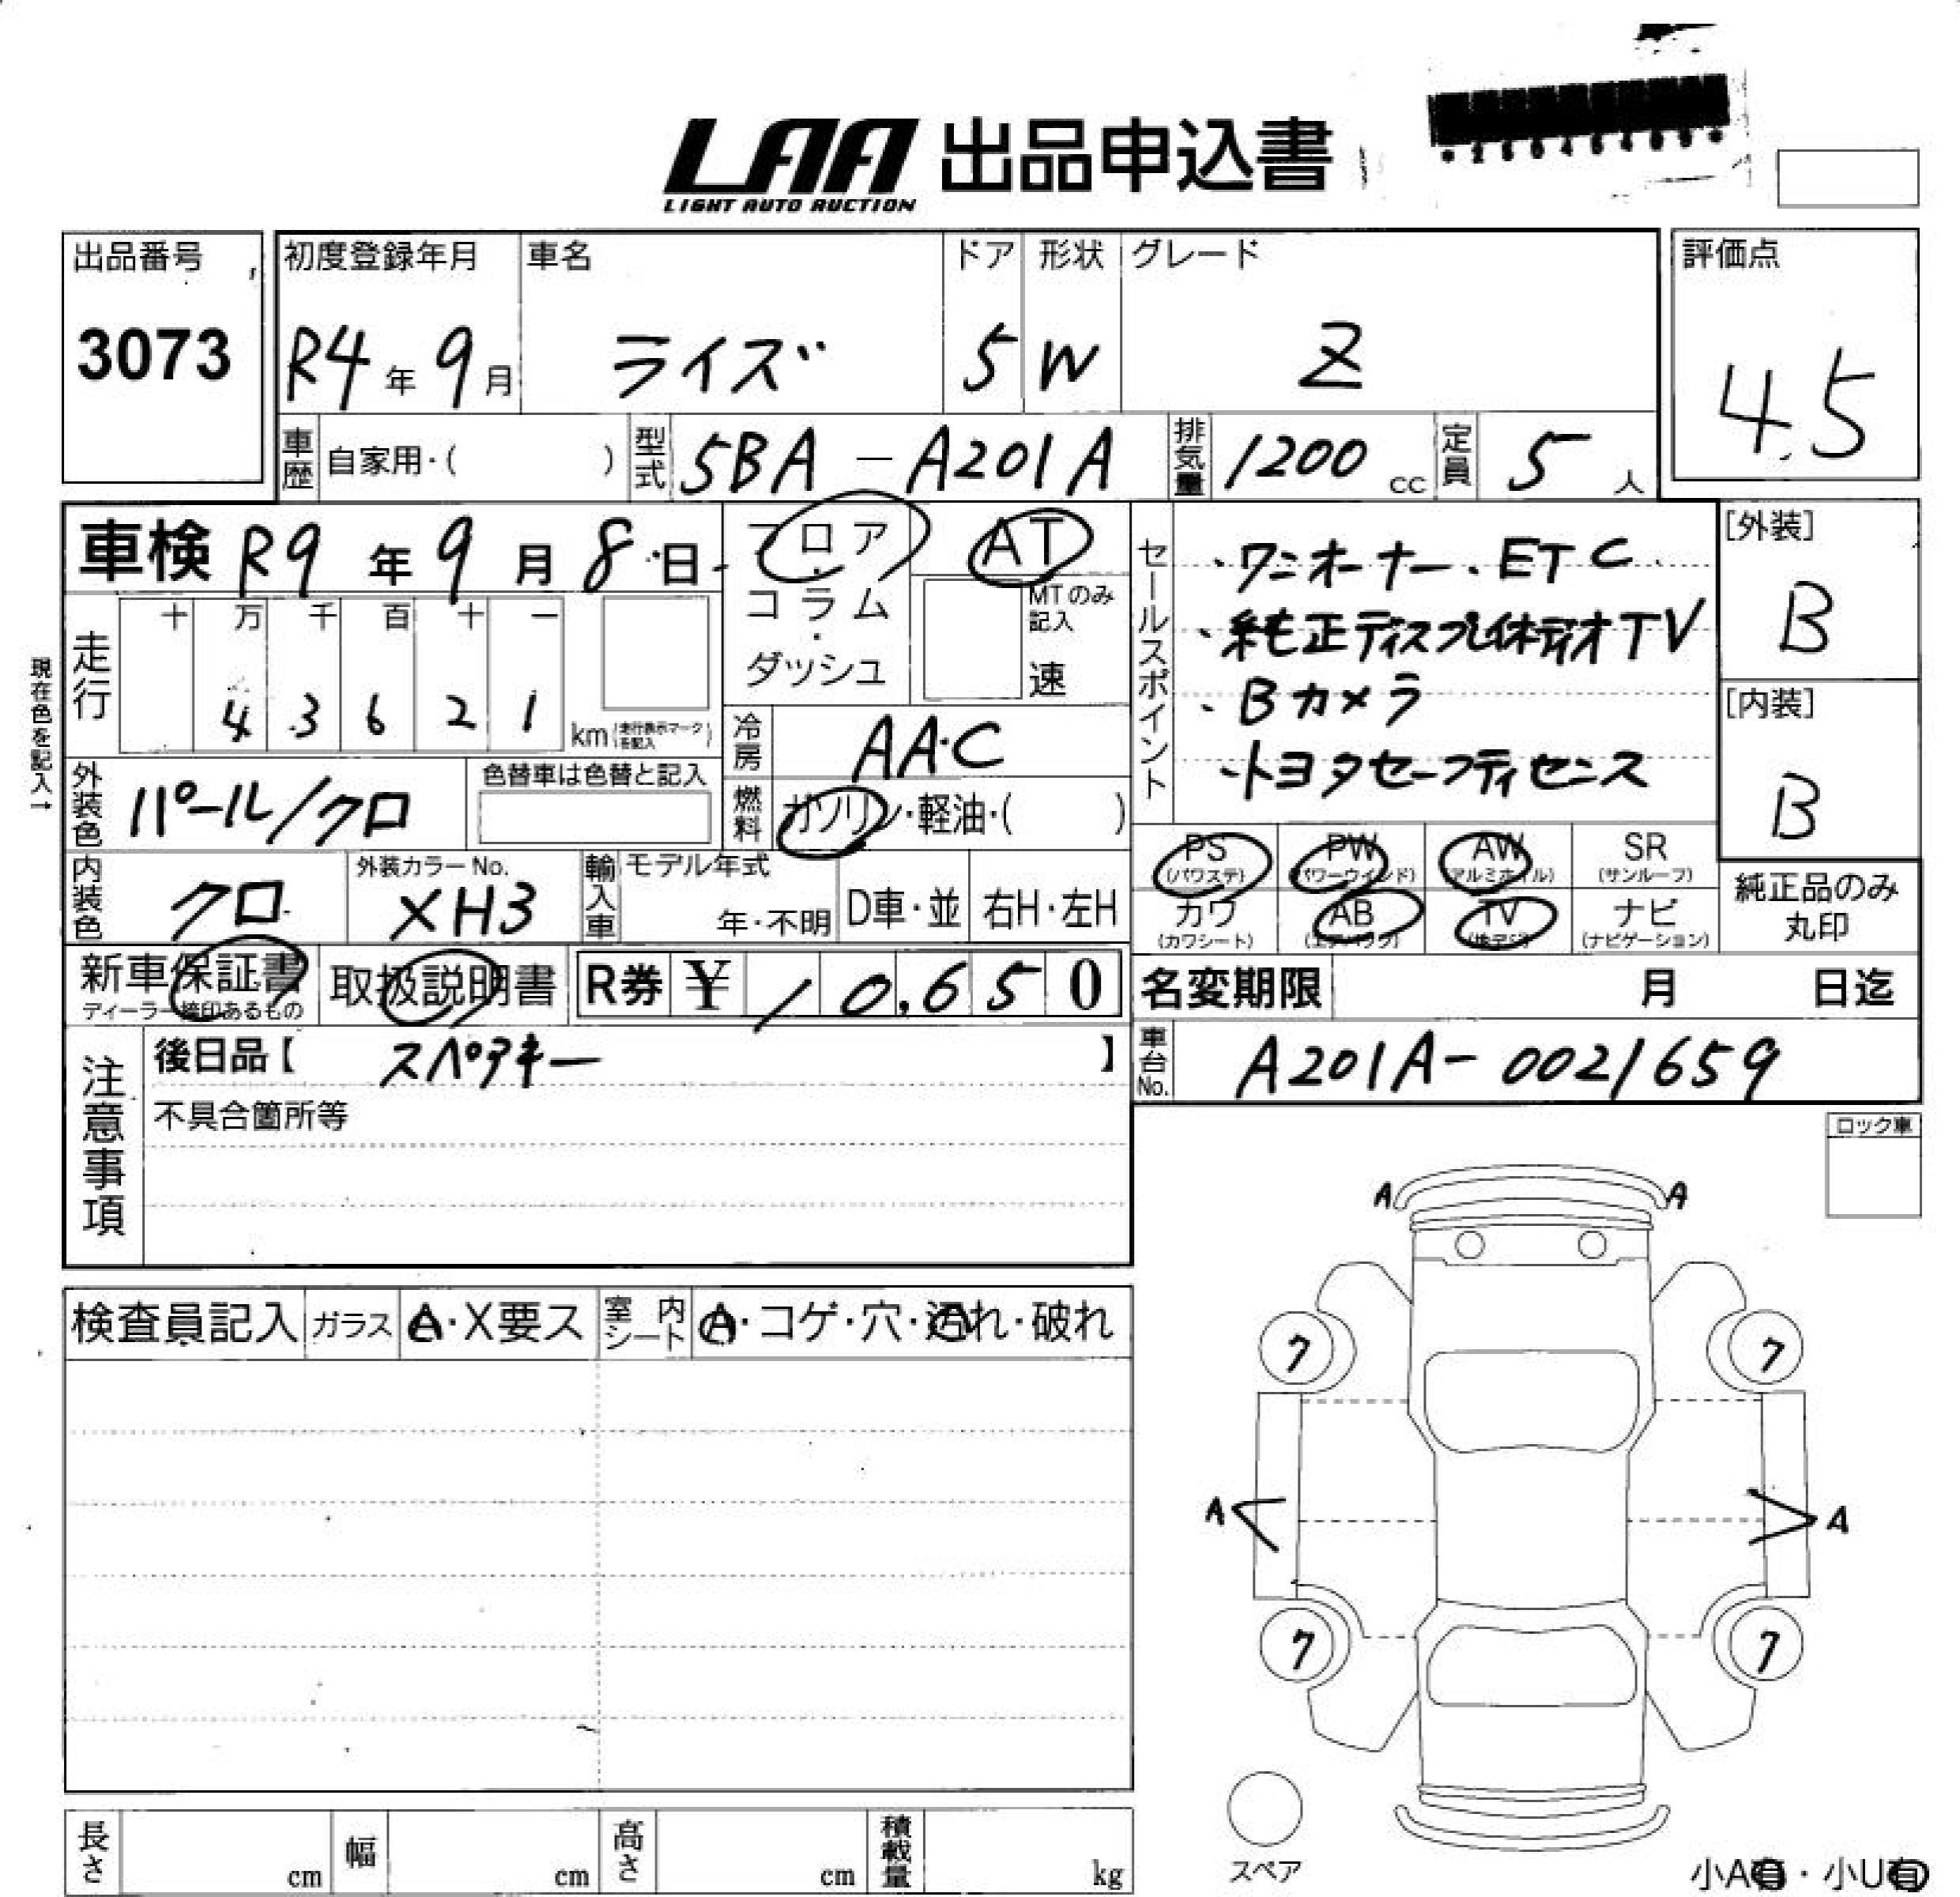 LAA 出品申込書
LIGHT AUTO AUCTION
出品番号 初度登録年月 車名 ドア 形状 グレード 評価点
3073 R4年9月 ライズ 5 W Z 4.5
車歴 自家用・( ) 型式 5BA-A201A 排気量 1200cc 定員 5人
車検 R9年9月8日 フロア・コラム・ダッシュ AT
MTのみ記入 速
現在色を記入→
走行 十 万 千 百 十 一
4 3 6 2 1 km(走行表示マークを記入)
冷房 AAC
外装色 パール/クロ 色替車は色替と記入
燃料 ガソリン・軽油・( )
内装色 クロ 外装カラーNo. XH3 輸入車 モデル年式 年・不明 D車・並 右H・左H
セールスポイント
・ワンオーナー.ETC
・純正ディスプレイオーディオTV
・Bカメラ
・トヨタセーフティセンス
[外装]
B
[内装]
B
PS(パワステ) PW(パワーウインド) AW(アルミホイル) SR(サンルーフ)
カワ(カワシート) AB(エアバッグ) TV(地デジ) ナビ(ナビゲーション)
純正品のみ丸印
新車保証書 ディーラー捺印あるもの 取扱説明書 R券 ¥ 10,650
名変期限 月 日迄
車台No. A201A-0021659
注意事項
後日品【 スペアキー 】
不具合箇所等
ロック車
検査員記入 ガラス A・X要ス 室内シート A・コゲ・穴・汚れ・破れ
A A
ワ ワ
A A
ワ ワ
スペア
長さ cm 幅 cm 高さ cm 積載量 kg
小A有・小U有